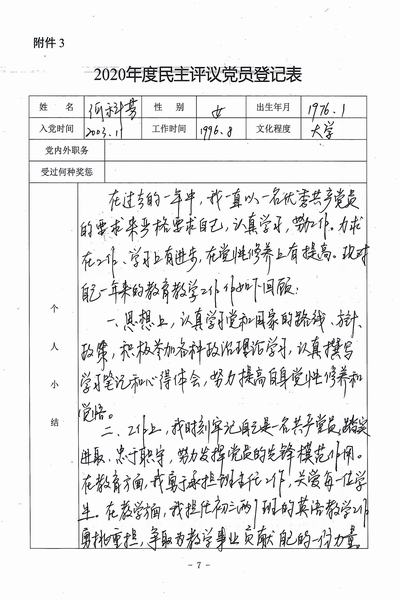 附件 3
2020年度民主评议党员登记表
姓 名 何科蓉 性 别 女 出生年月 1976.1
入党时间 2003.11 工作时间 1996.8 文化程度 大学
党内外职务
受过何种奖惩
个人小结
在过去的一年中，我一直以一名优秀共产党员
的要求来严格要求自己，认真学习，努力工作。力求
在工作、学习上有进步，在党性修养上有提高。现对
自己一年来的教育教学工作作如下回顾：
一、思想上，认真学习党和国家的路线、方针、
政策，积极参加各种政治理论学习，认真撰写
学习笔记和心得体会，努力提高自身党性修养和
觉悟。
二、工作上，我时刻牢记自己是一名共产党员，踏实
进取、忠于职守，努力发挥党员的先锋模范作用。
在教育方面，我勇于承担班主任工作，关爱每一位学
生。在教学方面，我担任初三两个班的英语教学工作
勇挑重担，争取为教学事业贡献自己的一份力量。
- 7 -